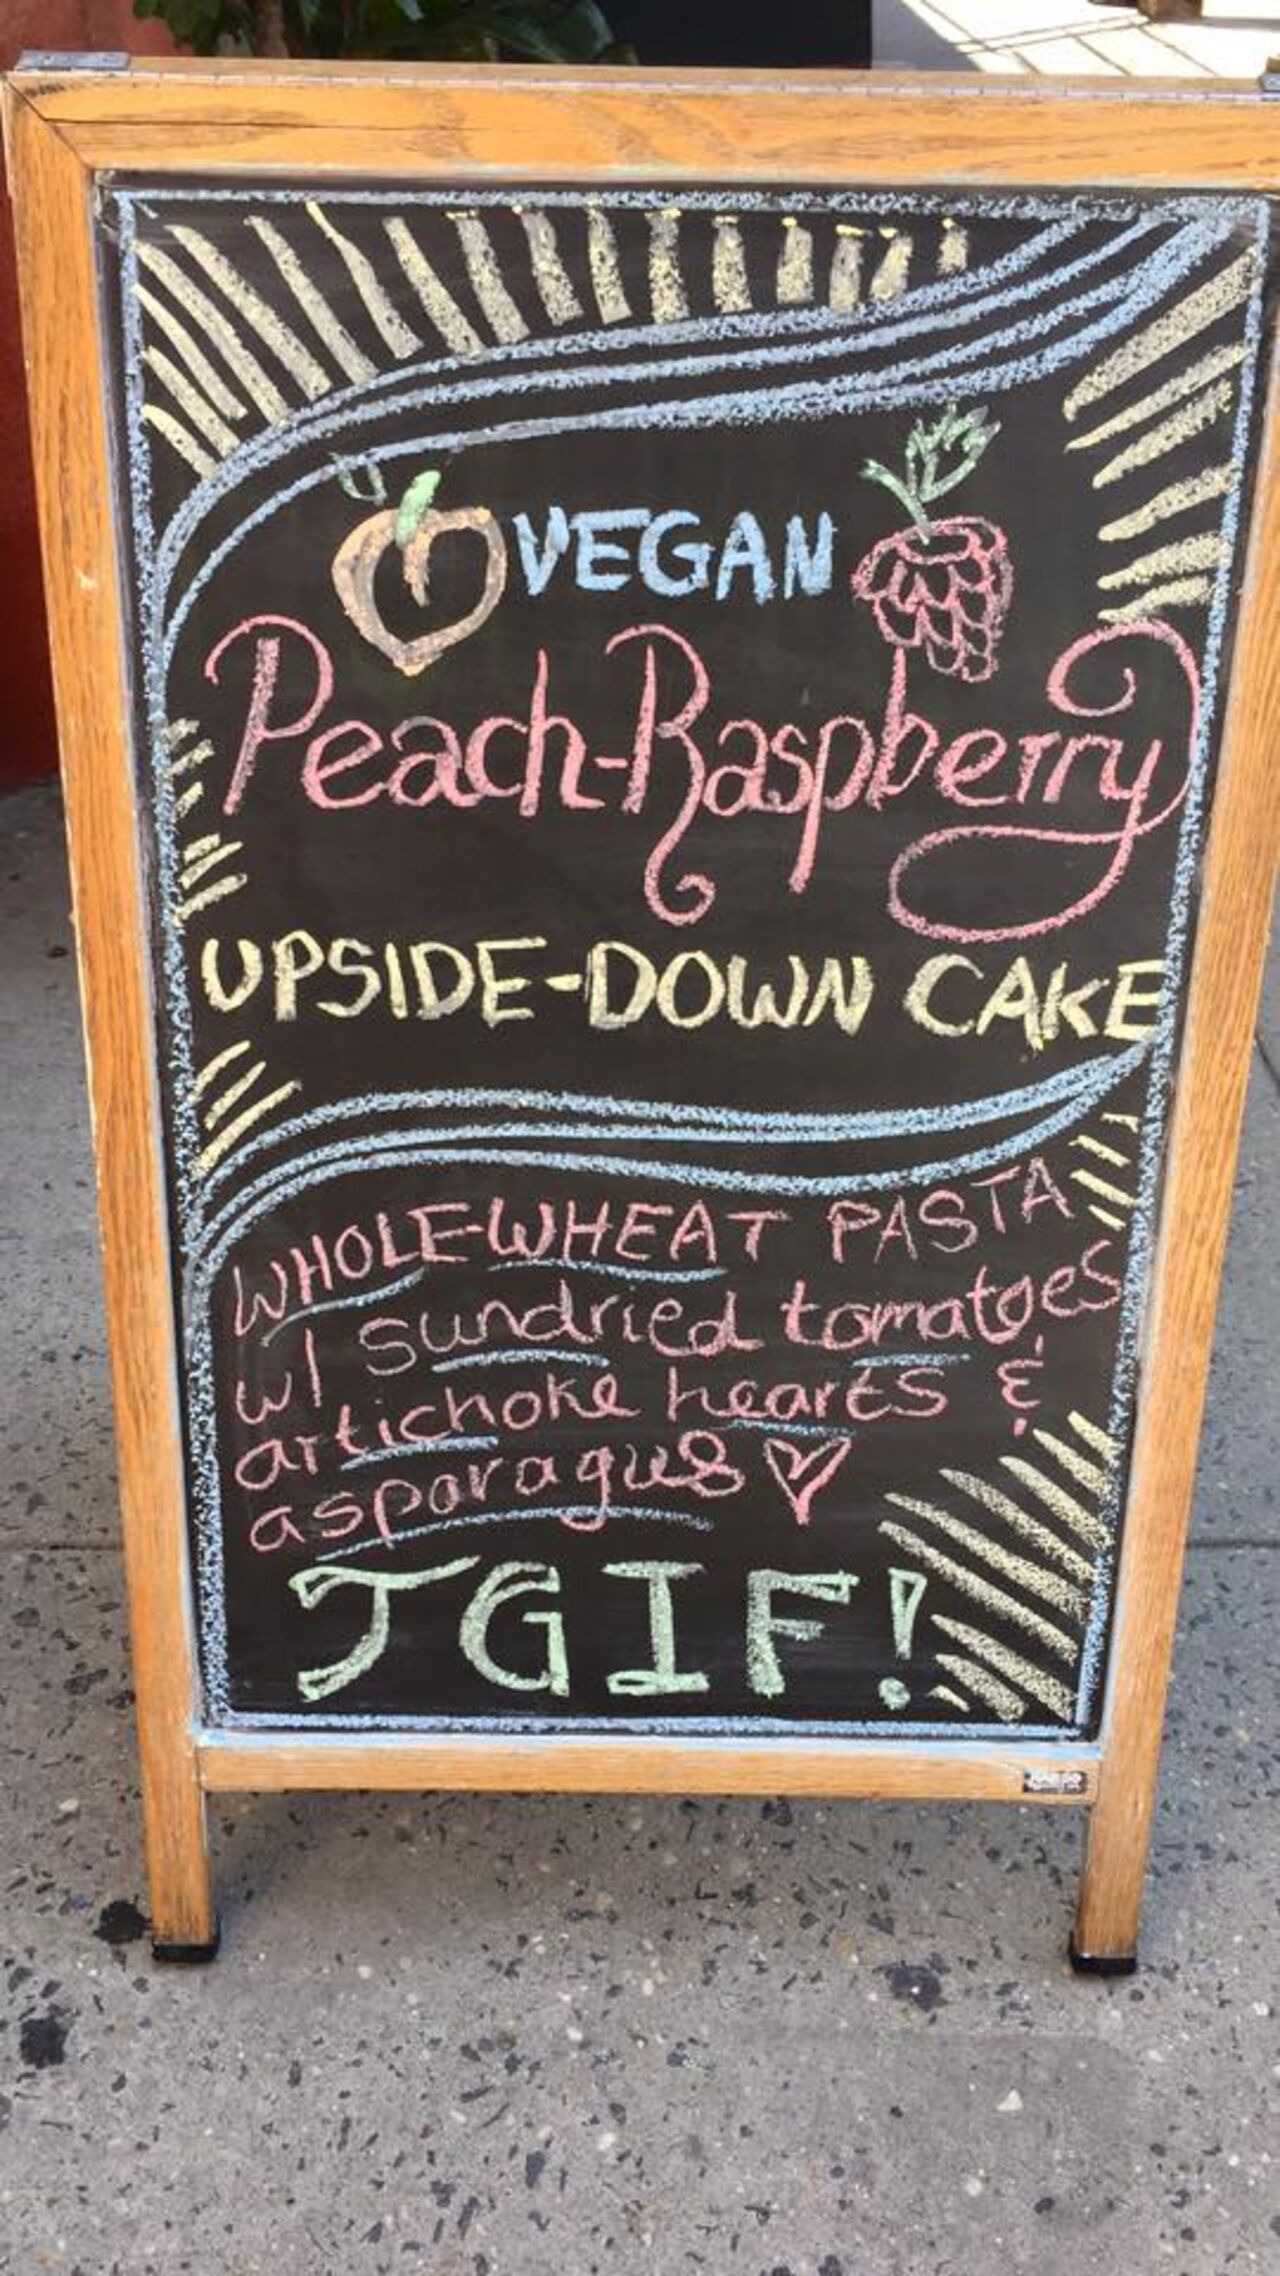 VEGAN
Peach-Raspberry
UPSIDE-DOWN CAKE
WHOLE-WHEAT PASTA
w/ sundried tomatoes
artichoke hearts &
asparagus
TGIF!